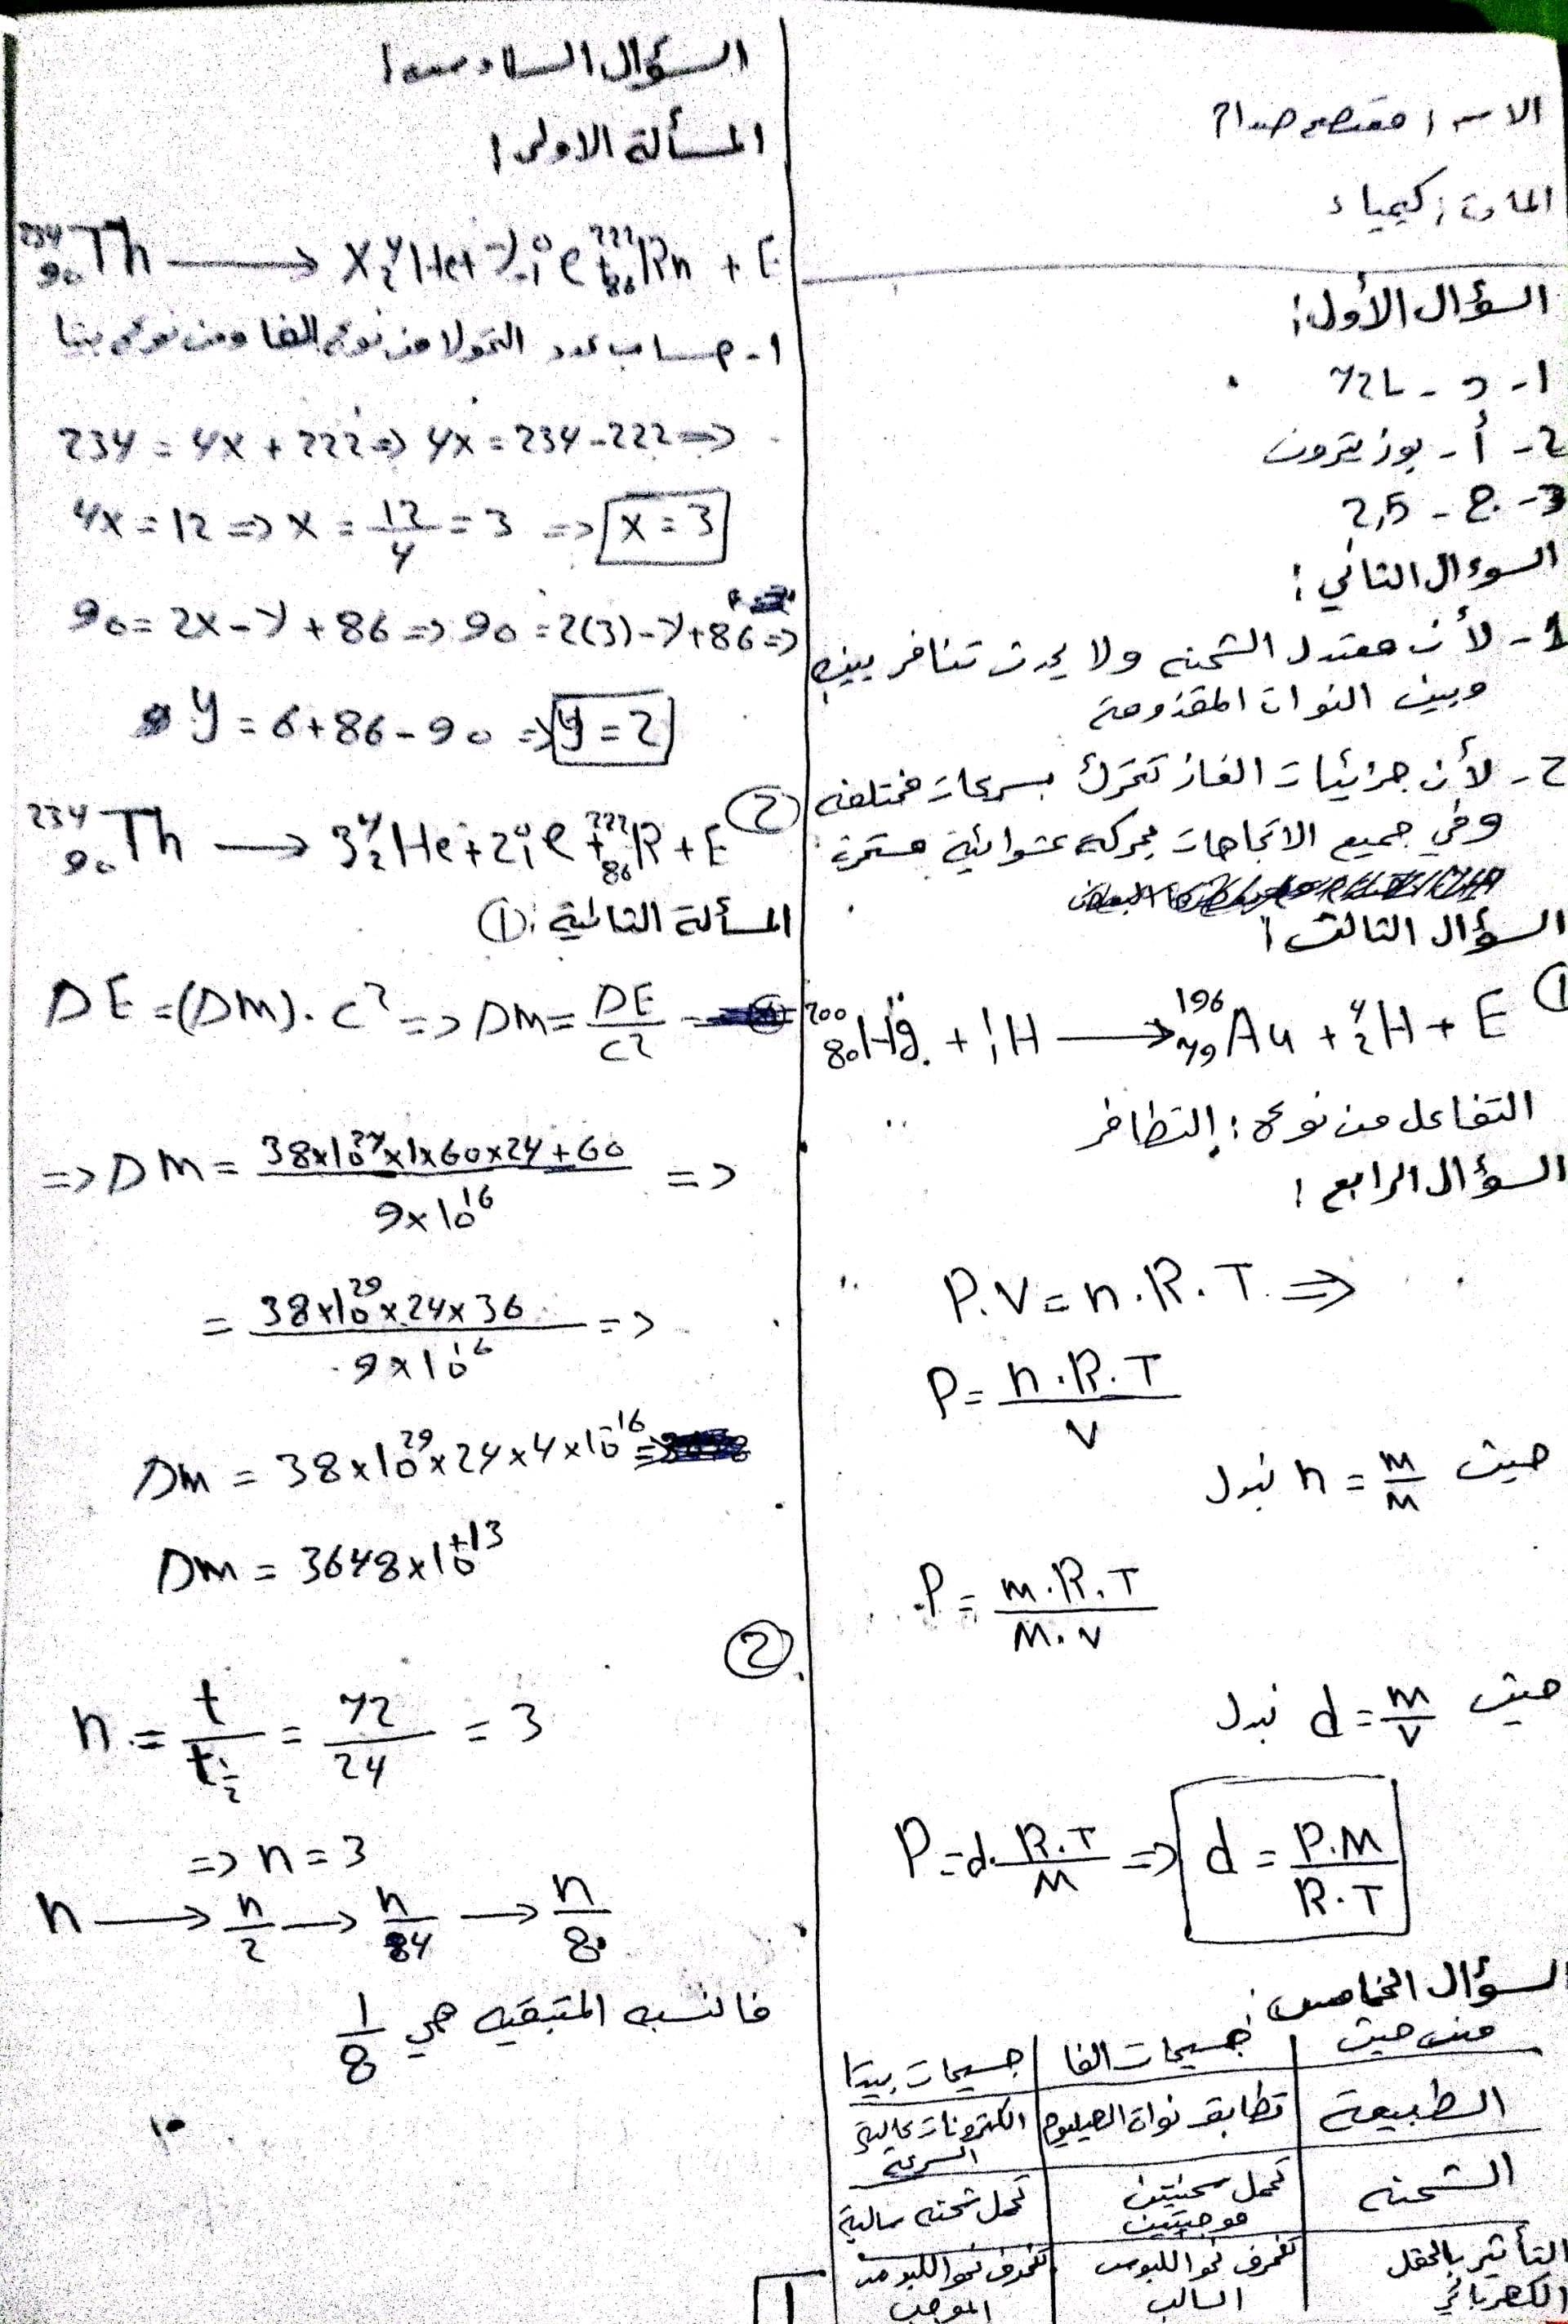 الاسم: معتصم صدام
المادة: كيمياء
السؤال الأول:
1- د - 72L
2- أ - بوزيترون
3- ج - 2,5
السوءال الثاني:
1- لأن معتدل الشحنه ولا يحدث تنافر بينه
وبين النواة المقذوفة
2- لأن جزئيات الغاز تتحرك بسرعات مختلفه
وفي جميع الاتجاهات بحركه عشوائية مستمرة
السؤال الثالث:
① ²⁰⁰₈₀Hg + ¹₁H ⟶ ¹⁹⁶₇₉Au + ⁴₂H + E
التفاعل من نوع: التطافر
السؤال الرابع:
P.V = n.R.T ⇒
P = n.R.T / V
حيث n = m/M نبدل
P = m.R.T / M.V
حيث d = m/V نبدل
P = d. R.T / M ⇒ d = P.M / R.T
السؤال الخامس:
من حيث | جسيمات الفا | جسيمات بيتا
الطبيعة | تطابق نواة الهيليوم | الكترونات عالية السرعة
الشحنه | تحمل شحنتين موجبتين | تحمل شحنه سالبة
التأثير بالحقل الكهربائي | تنحرف نحو اللبوس السالب | تنحرف نحو اللبوس الموجب
السؤال السادس:
المسألة الاولى:
²³⁴₉₀Th ⟶ X⁴₂He + y⁰₋₁e + ²²²₈₆Rn + E
1- حساب عدد التحولا من نوع الفا ومن نوع بيتا
234 = 4X + 222 ⇒ 4X = 234 - 222 ⇒
4X = 12 ⇒ X = 12/4 = 3 ⇒ X = 3
90 = 2X - y + 86 ⇒ 90 = 2(3) - y + 86 ⇒
y = 6 + 86 - 90 ⇒ y = 2
② ²³⁴₉₀Th ⟶ 3⁴₂He + 2⁰₋₁e + ²²²₈₆R + E
المسألة الثانية: ①
DE = (Dm).C² ⇒ Dm = DE / C²
⇒ Dm = 38×10²⁷×1×60×24+60 / 9×10¹⁶ ⇒
= 38×10²⁹×24×36 / 9×10¹⁶ ⇒
Dm = 38×10²⁹×24×4×10⁻¹⁶
Dm = 3648×10⁺¹³
②
n = t / t½ = 72 / 24 = 3
⇒ n = 3
n ⟶ n/2 ⟶ n/4 ⟶ n/8
فالنسبه المتبقيه هي 1/8
1